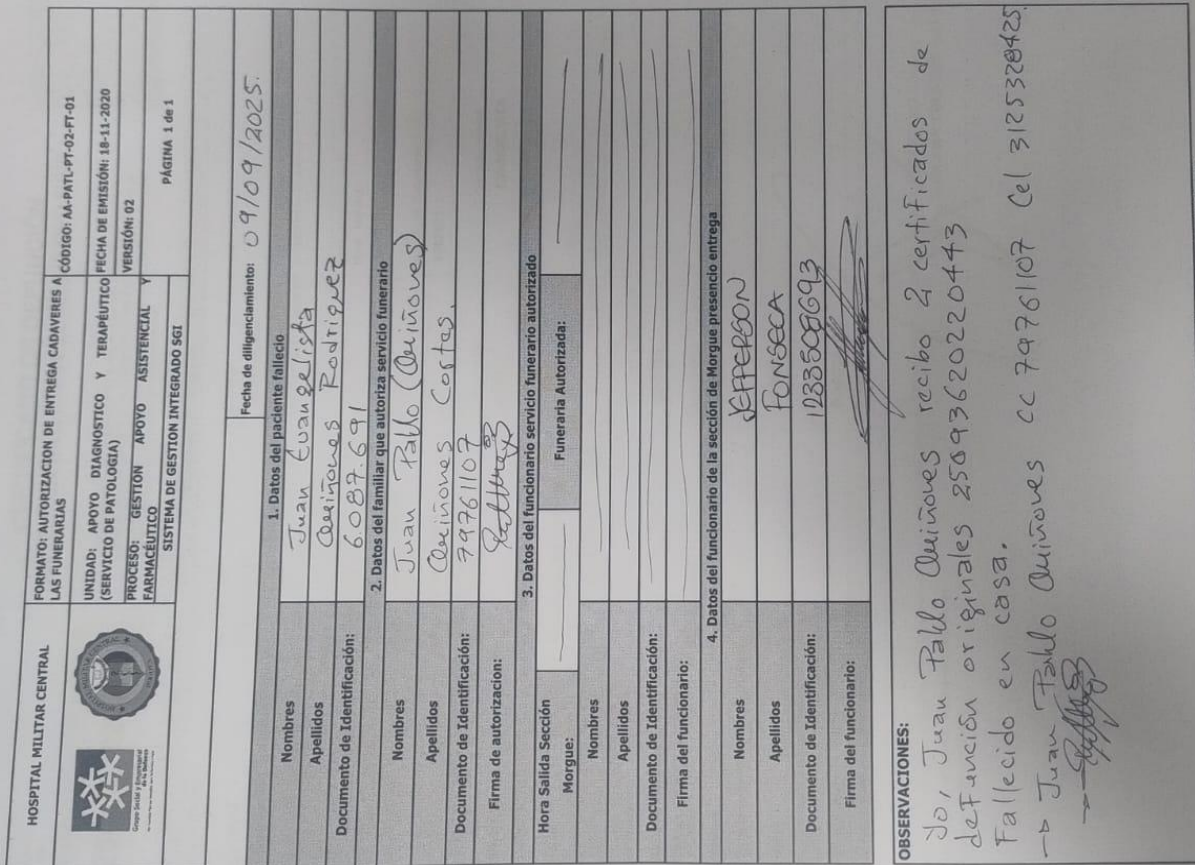 HOSPITAL MILITAR CENTRAL
FORMATO: AUTORIZACION DE ENTREGA CADAVERES A LAS FUNERARIAS
CÓDIGO: AA-PATL-PT-02-FT-01
Grupo Social y Empresarial
de la Defensa
UNIDAD: APOYO DIAGNOSTICO Y TERAPÉUTICO
(SERVICIO DE PATOLOGIA)
FECHA DE EMISIÓN: 18-11-2020
PROCESO: GESTION APOYO ASISTENCIAL Y
FARMACÉUTICO
VERSIÓN: 02
SISTEMA DE GESTION INTEGRADO SGI
PÁGINA 1 de 1
Fecha de diligenciamiento: 09/09/2025.
1. Datos del paciente fallecio
Nombres Juan Evangelista
Apellidos Quiñones Rodriguez
Documento de Identificación: 6.087.691
2. Datos del familiar que autoriza servicio funerario
Nombres Juan Pablo (Quiñones)
Apellidos Quiñones Cortes.
Documento de Identificación: 79761107
Firma de autorizacion:
3. Datos del funcionario servicio funerario autorizado
Hora Salida Sección
Morgue:
Funeraria Autorizada:
Nombres
Apellidos
Documento de Identificación:
Firma del funcionario:
4. Datos del funcionario de la sección de Morgue presencio entrega
Nombres JEFFERSON
Apellidos FONSECA
Documento de Identificación:
Firma del funcionario:
OBSERVACIONES:
Yo, Juan Pablo Quiñones recibo 2 certificados de
defunción originales 25093620220443
Fallecido en casa.
→ Juan Pablo Quiñones cc 79761107 Cel 3125328425